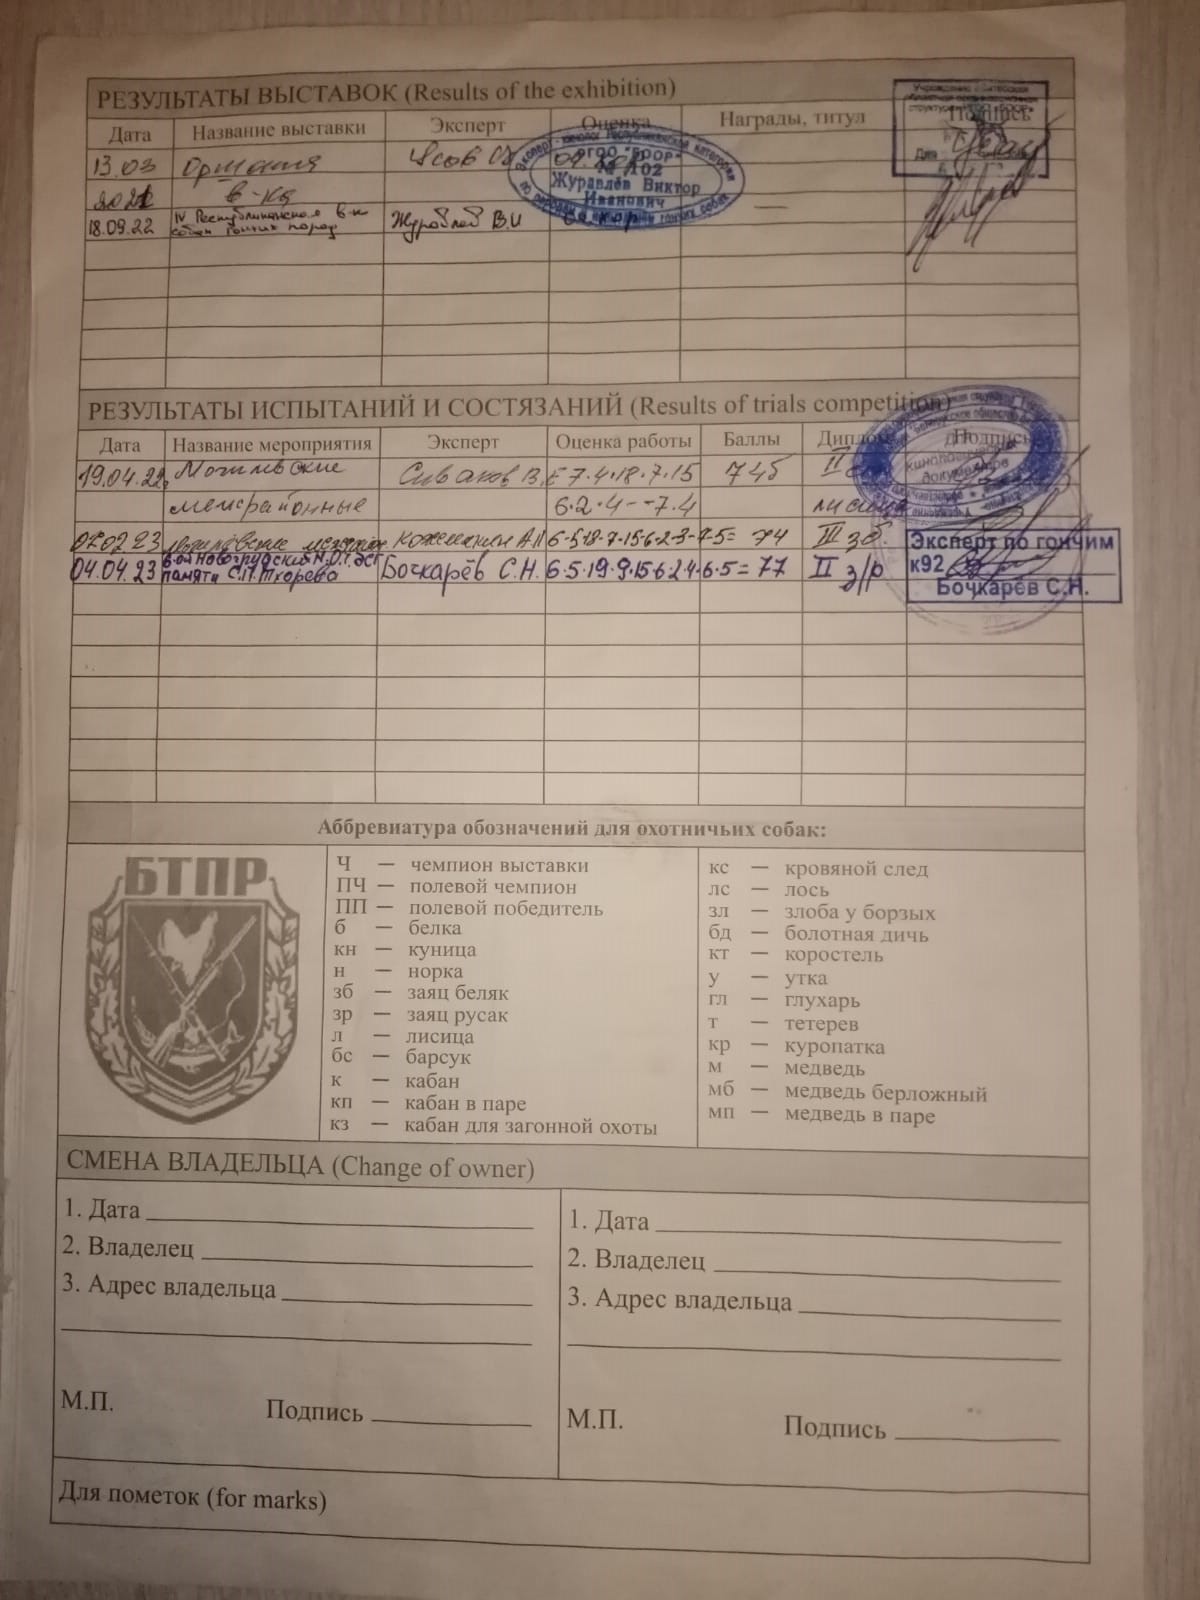 РЕЗУЛЬТАТЫ ВЫСТАВОК (Results of the exhibition)
Дата Название выставки Эксперт Оценка Награды, титул Подпись
13.03
2021 в-ка
18.09.22 IV Республиканская в-ка Журавлёв В.И
собак гончих пород
Эксперт - кинолог Республиканской категории
РГОО "БООР"
№ 102
Журавлёв Виктор
Иванович
РЕЗУЛЬТАТЫ ИСПЫТАНИЙ И СОСТЯЗАНИЙ (Results of trials competition)
Дата Название мероприятия Эксперт Оценка работы Баллы Диплом Подпись
19.04.22 Могилевские Сиваков В.Е 7.4.18.7.15 74б II
межрайонные 6.2.4--7.4 лисица
07.02.23 74 III зб.
04.04.23 памяти С.П. Тхорева Бочкарёв С.Н. 6.5.19.9.15.6.2.4.6.5=77 II з/р
Кинологических
документов
Эксперт по гончим
к92
Бочкарёв С.Н.
Аббревиатура обозначений для охотничьих собак:
БТПР
Ч — чемпион выставки
ПЧ — полевой чемпион
ПП — полевой победитель
б — белка
кн — куница
н — норка
зб — заяц беляк
зр — заяц русак
л — лисица
бс — барсук
к — кабан
кп — кабан в паре
кз — кабан для загонной охоты
кс — кровяной след
лс — лось
зл — злоба у борзых
бд — болотная дичь
кт — коростель
у — утка
гл — глухарь
т — тетерев
кр — куропатка
м — медведь
мб — медведь берложный
мп — медведь в паре
СМЕНА ВЛАДЕЛЬЦА (Change of owner)
1. Дата
2. Владелец
3. Адрес владельца
М.П. Подпись
1. Дата
2. Владелец
3. Адрес владельца
М.П. Подпись
Для пометок (for marks)